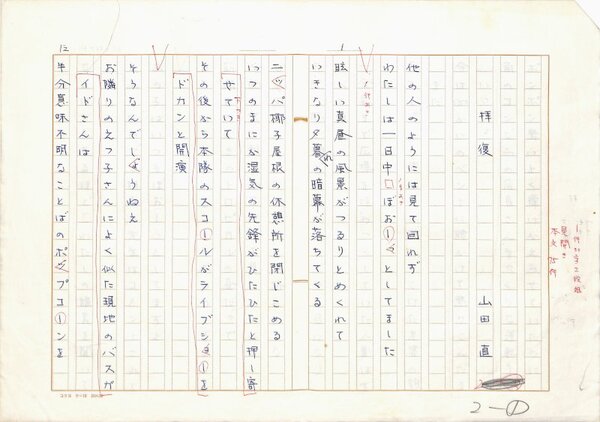 拝復
山田直
他の人のようには見て回れず
わたしは一日中ぼおーっとしてました
眩しい真昼の風景がつるりとめくれて
いきなり夕暮れの暗幕が落ちてくる
ニッパ椰子屋根の休憩所を閉じこめる
いつのまにか湿気の先鋒がひたひたと押し寄
せていて
その後から本隊のスコールがライブショーを
ドカンと開演
そうなんでしょうねえ
お隣りのえつ子さんによく似た現地のバスガ
イドさんは
半分意味不明なことばのポップコーンを
2-①
1
12